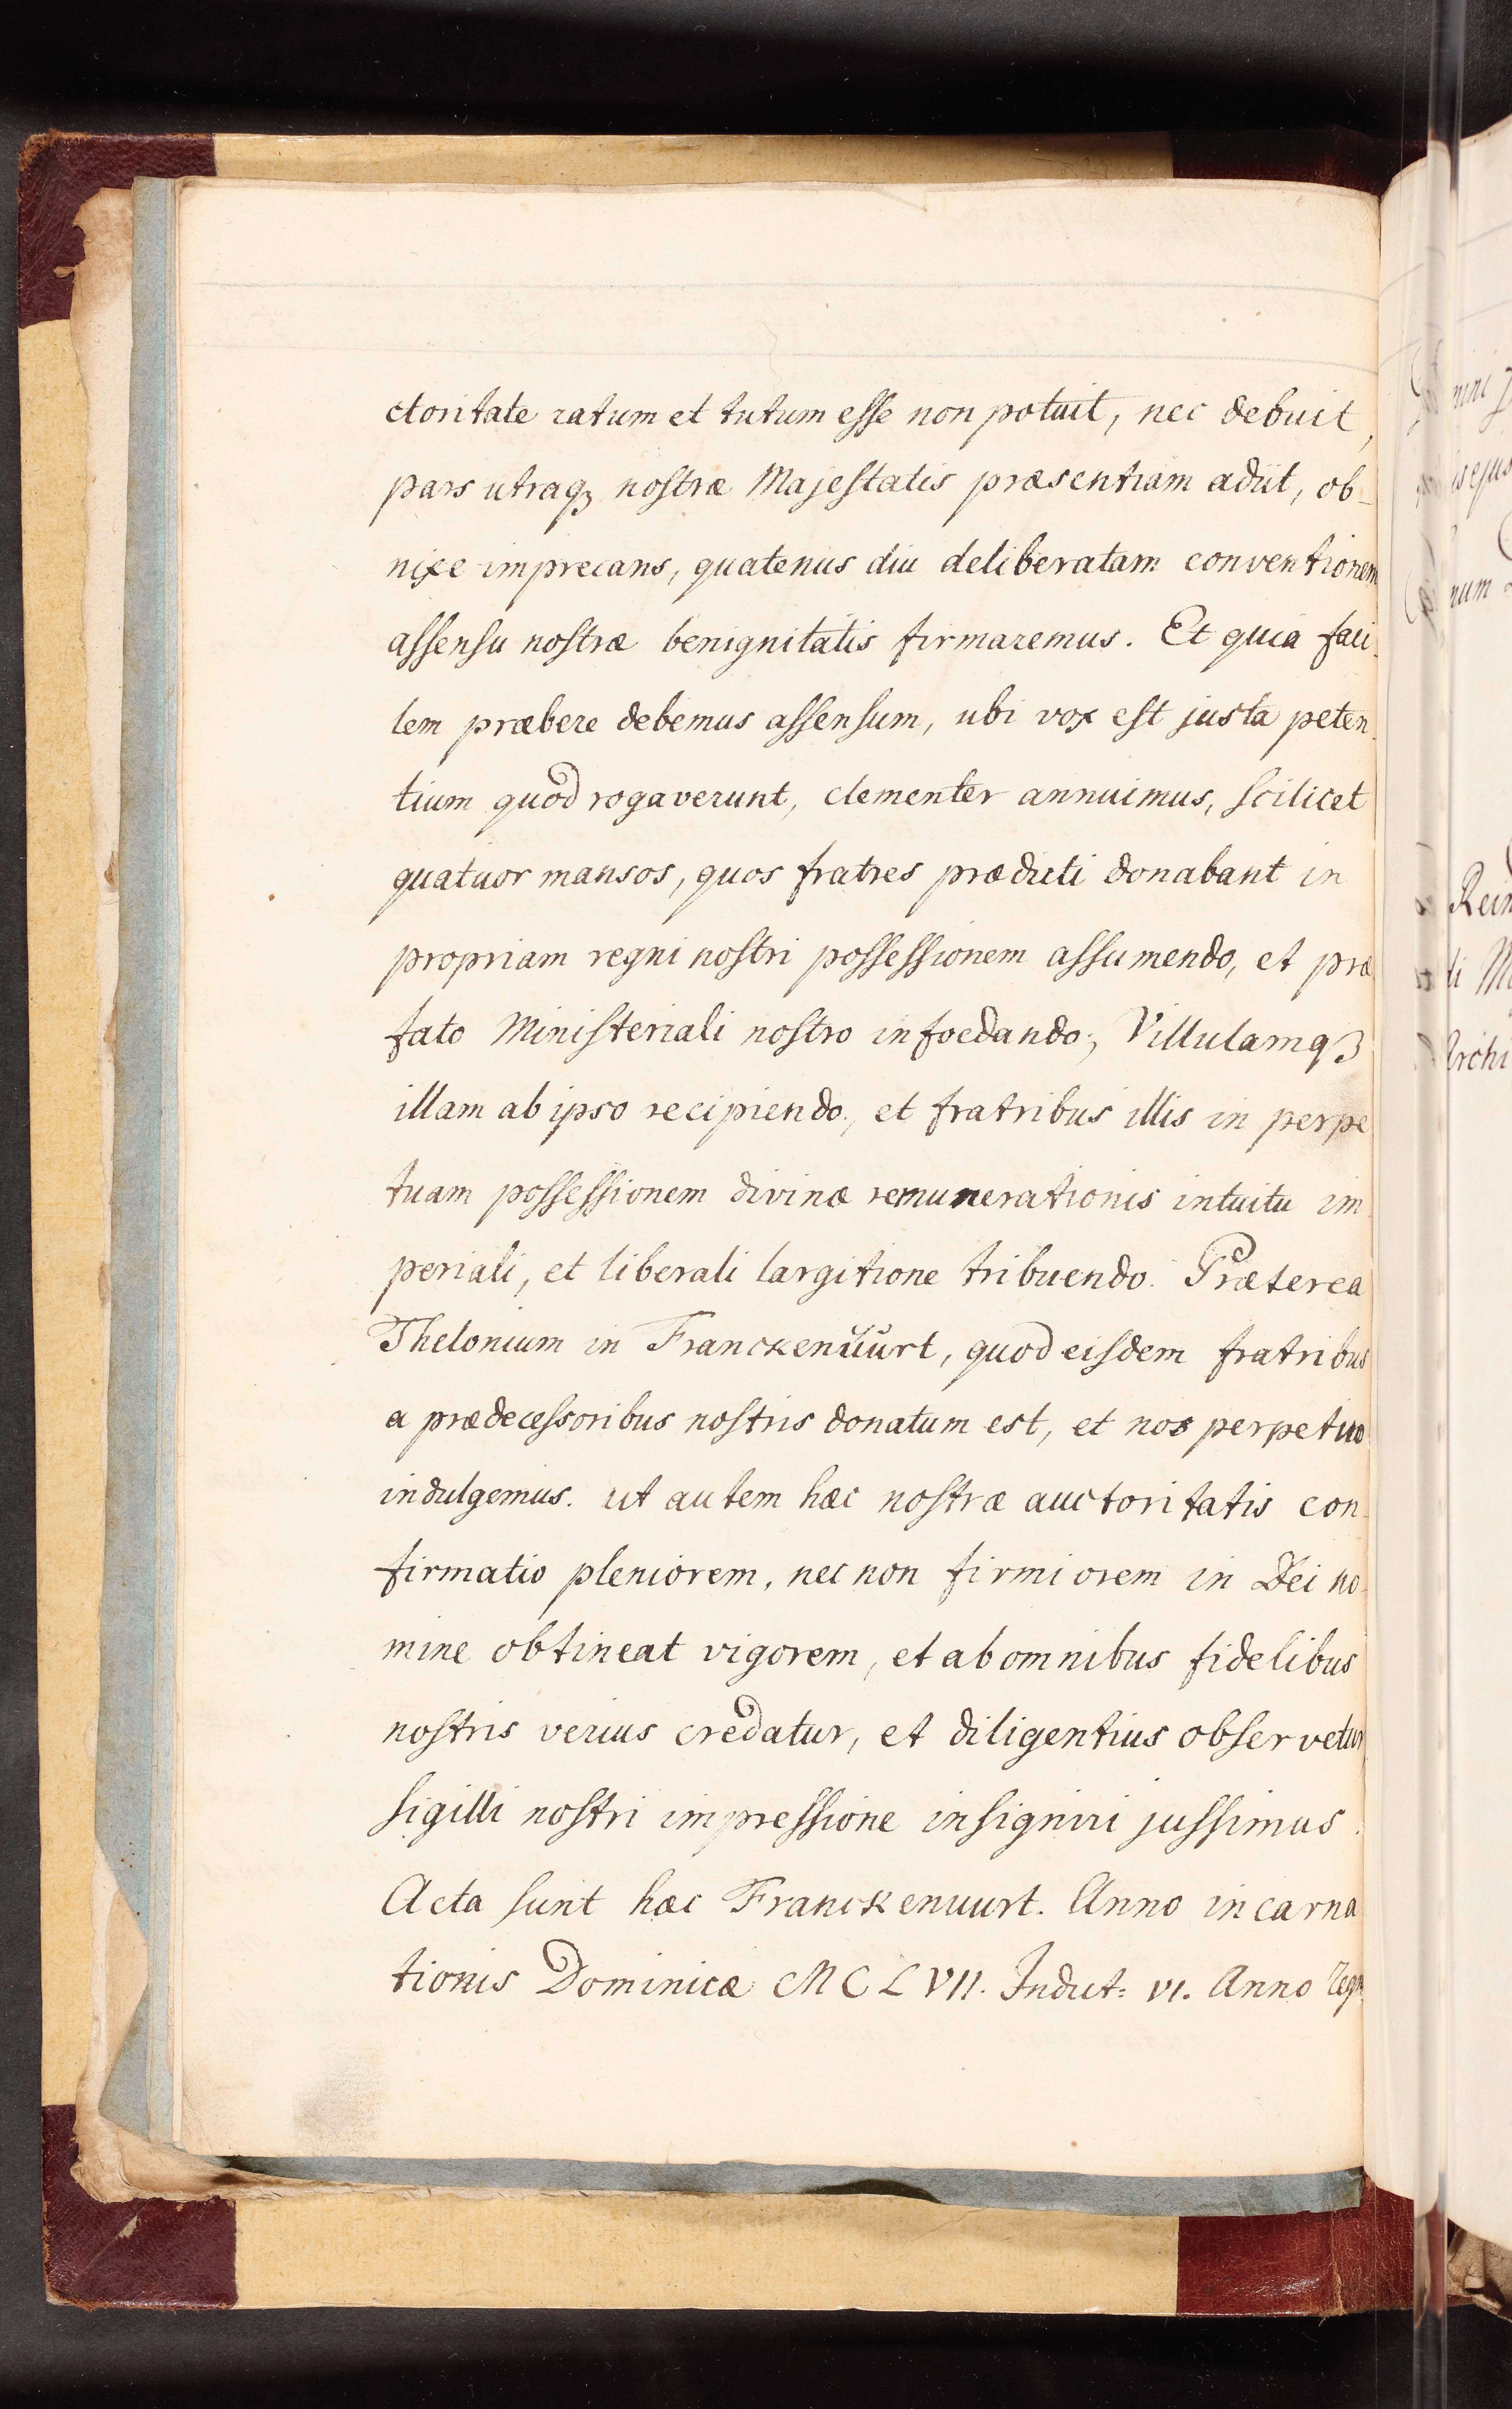 ctoritate ratum et tutum esse non potuit, nec debuit,
pars utraqꝫ nostræ Majestatis præsentiam adiit, ob-
nixe imprecans, quatenus diu deliberatam conventionem
assensu nostræ benignitatis firmaremus. Et quia faci-
lem præbere debemus assensum, ubi vox est justa peten-
tium quod rogaverunt, clementer annuimus, scilicet
quatuor mansos, quos fratres prædicti donabant in
propriam regni nostri possessionem assumendo, et præ
fato Ministeriali nostro infoedando; Villulamqꝫ
illam ab ipso recipiendo, et fratribus illis in perpe
tuam possessionem divinæ remunerationis intuitu im-
periali, et liberali largitione tribuendo. Præterea
Thelonium in Franckenŭŭrt, quod eisdem fratribus
a prædecessoribus nostris donatum est, et nos perpetuo
indulgemus. ut autem hæc nostræ auctoritatis con-
firmatio pleniorem, nec non firmiorem in Dei no-
mine obtineat vigorem, et ab omnibus fidelibus
nostris verius credatur, et diligentius observetur
sigilli nostri impressione insigniri jussimus.
Acta sunt hæc Franckenuurt. Anno incarna
tionis Dominicæ MCLVII. Indict: VI. Anno
nini
is ejus
num
Rein
ti
Archi